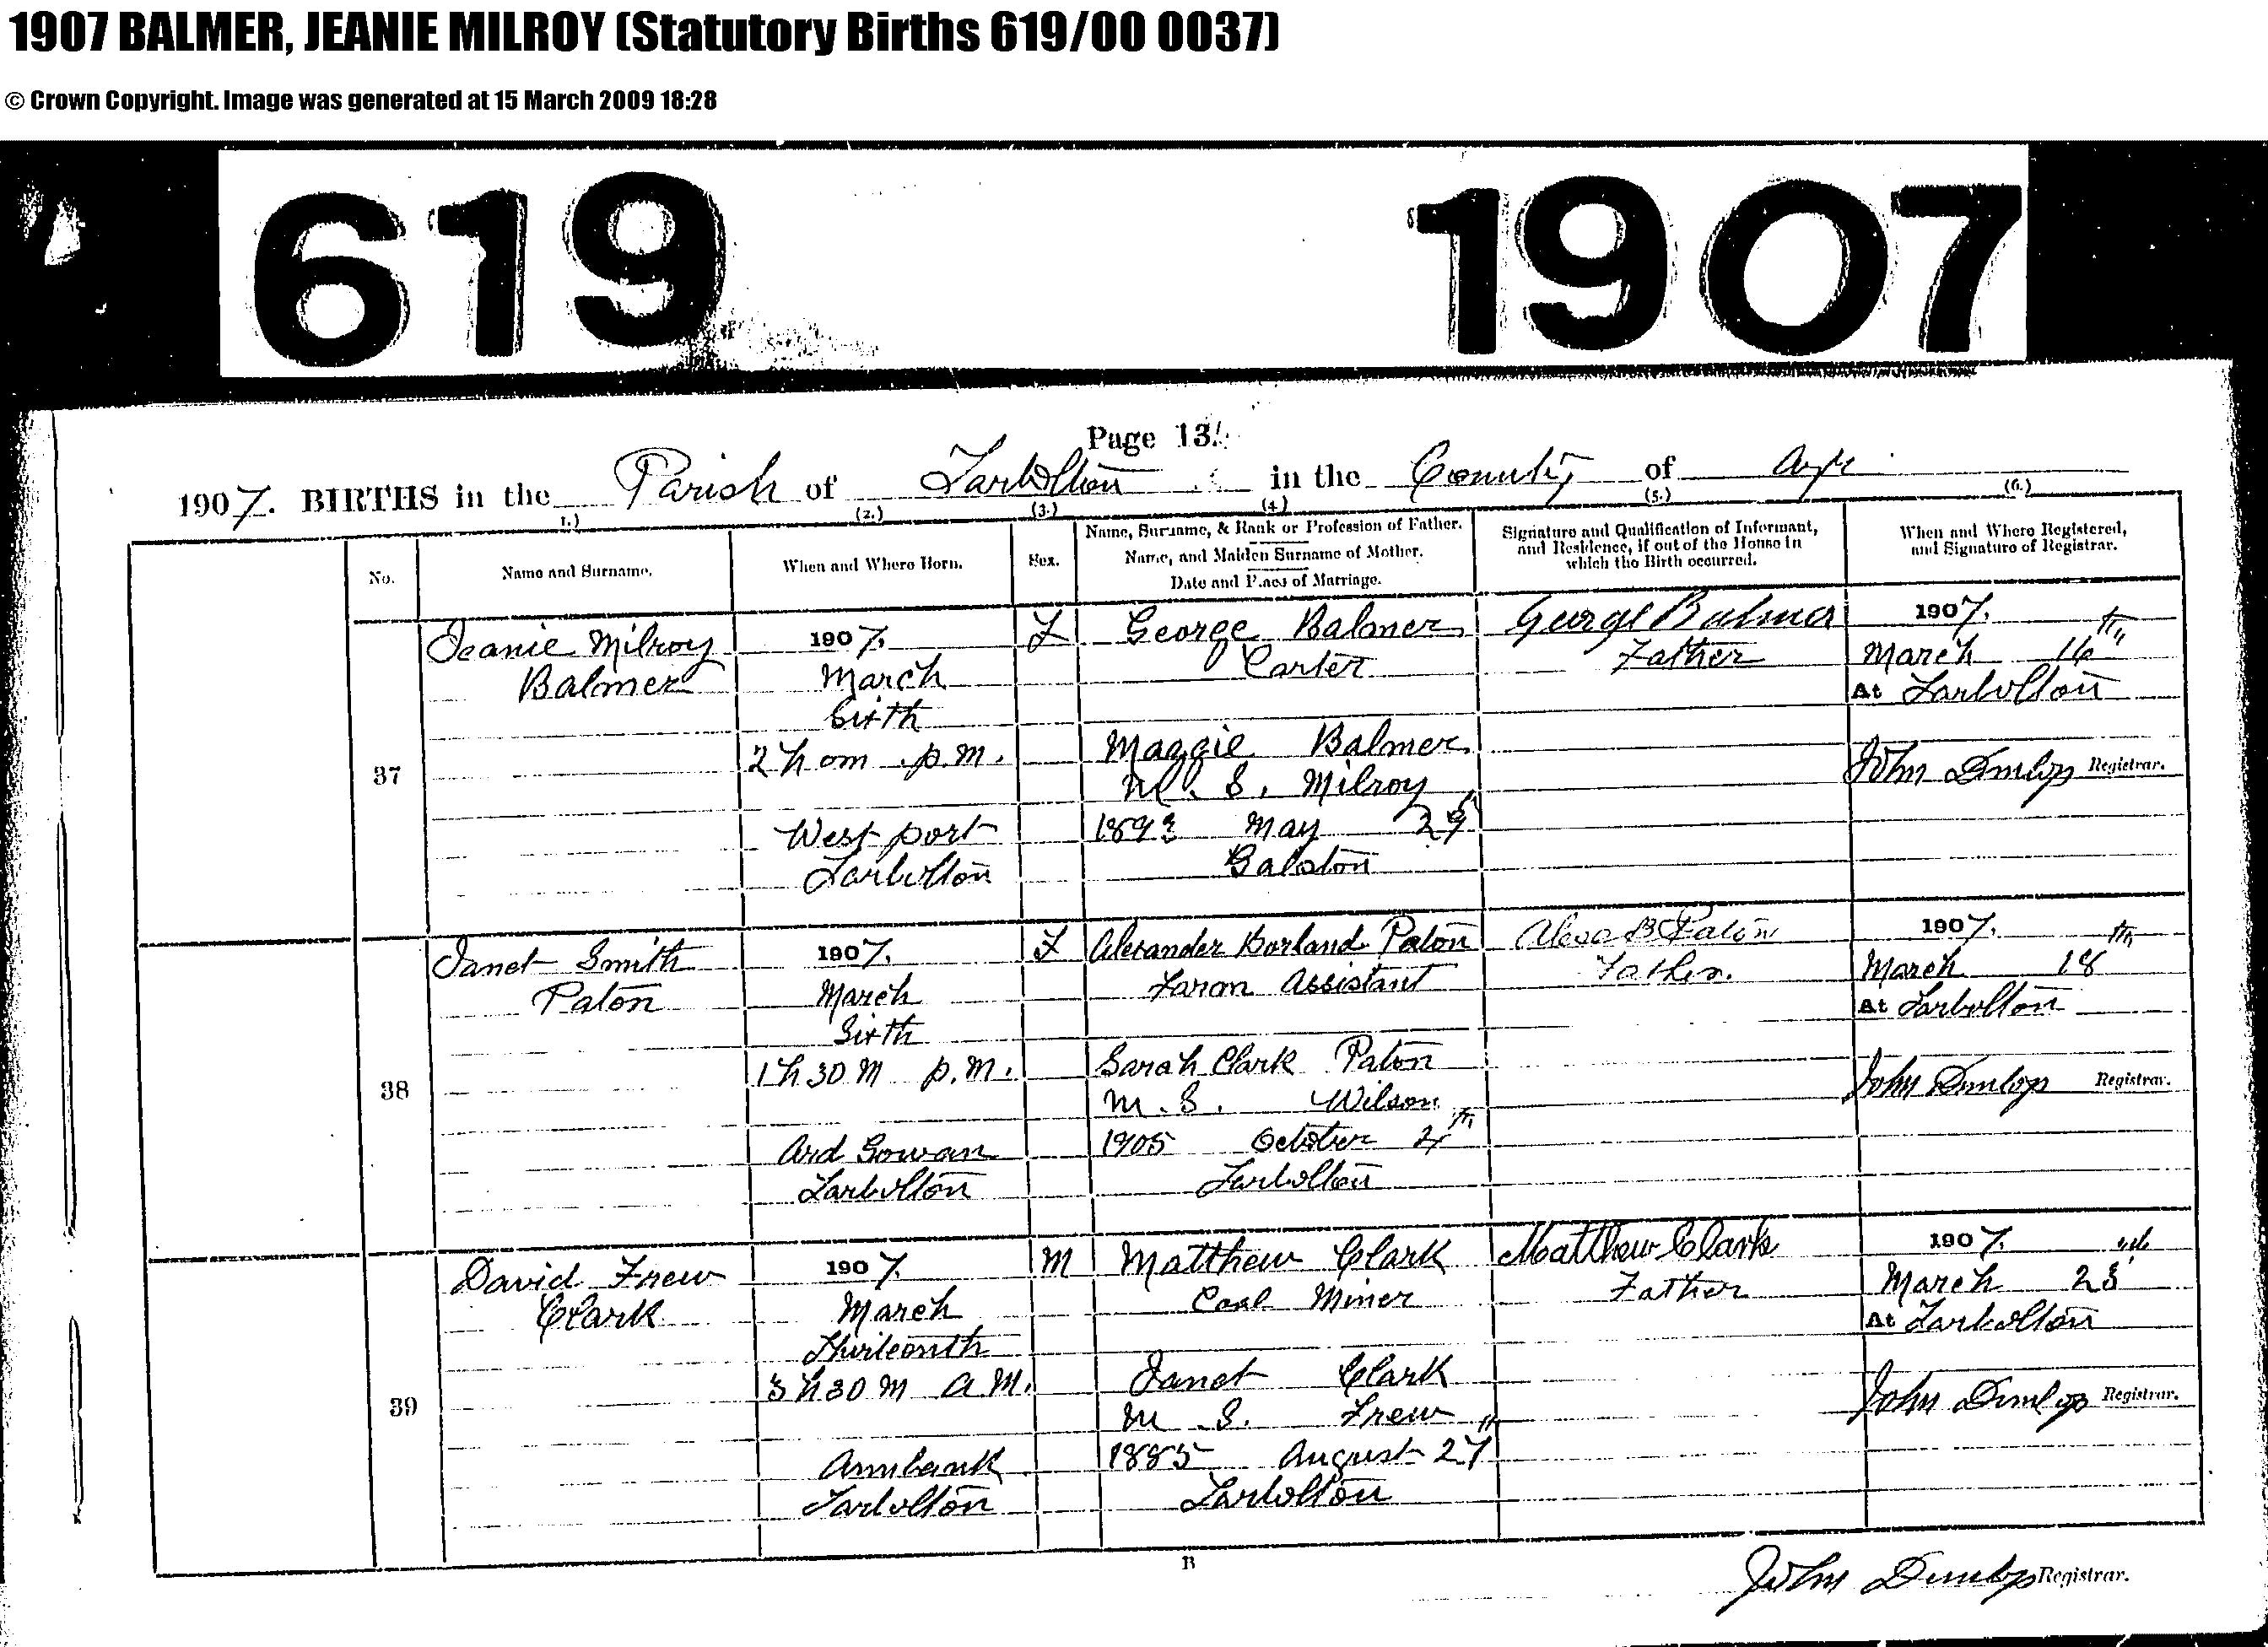 1907 BALMER, JEANIE MILROY (Statutory Births 619/00 0037)
© Crown Copyright. Image was generated at 15 March 2009 18:28
619 1907
Page 13.
1907. BIRTHS in the Parish of Tarbolton in the County of Ayr
(1.) (2.) (3.) (4.) (5.) (6.)
No.
Name and Surname.
When and Where Born.
Sex.
Name, Surname, & Rank or Profession of Father.
Name, and Maiden Surname of Mother.
Date and Place of Marriage.
Signature and Qualification of Informant,
and Residence, if out of the House in
which the Birth occurred.
When and Where Registered,
and Signature of Registrar.
37
Jeanie Milroy
Balmer
1907.
March
Sixth
2 h 0m p.m.
West port
Tarbolton
F
George Balmer
Carter
Maggie Balmer
M. S. Milroy
189 May 29
Galston
George Balmer
Father
1907.
March 16th
At Tarbolton
John Dunlop Registrar.
38
Janet Smith
Paton
1907.
March
Sixth
1 h 30 M p.m.
Ard Gowan
Tarbolton
F
Alexander Borland Paton
Farm Assistant
Sarah Clark Paton
M. S. Wilson
1905 October 4th
Tarbolton
Alexr B Paton
Father.
1907.
March 18th
At Tarbolton
John Dunlop Registrar.
39
David Frew
Clark
1907.
March
Thirteenth
3 h 30 M A.M.
Annbank
Tarbolton
M
Matthew Clark
Coal Miner
Janet Clark
M. S. Frew
1885 August 27th
Tarbolton
Matthew Clark
Father
1907.
March 23
At Tarbolton
John Dunlop Registrar.
B
John Dunlop Registrar.